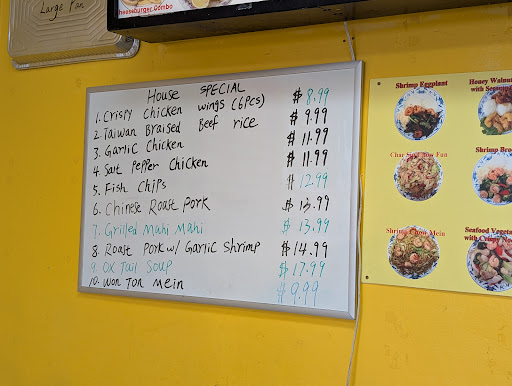 Large Pan
heeseburger Combo
House SPECIAL
1. Crispy Chicken wings (6pcs) $8.99
2 Taiwan Braised Beef rice $9.99
3. Garlic Chicken $11.99
4 Salt Pepper Chicken $11.99
5. Fish Chips $12.99
6. Chinese Roast Pork $13.99
7. Grilled Mahi Mahi $13.99
8. Roast Pork w/ Garlic Shrimp $14.99
9. OX Tail Soup $17.99
10. Won Ton Mein $9.99
Shrimp Eggplant
Honey Walnut
with
Char Siu Chow Fun
Shrimp Bro
Shrimp Chow Mein
Seafood Vegeta
with Crispy